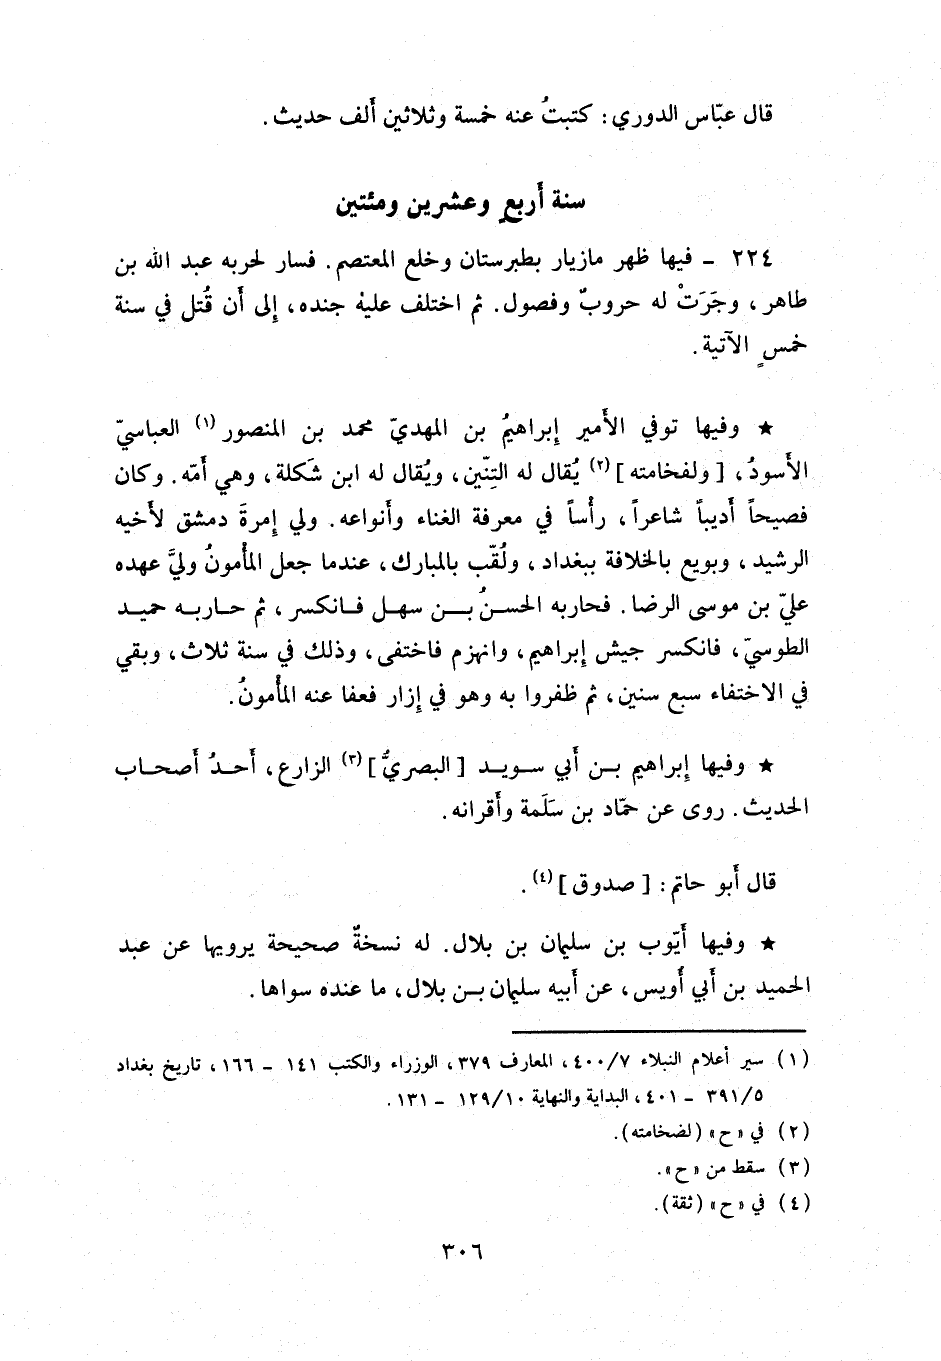 قال عبّاس الدوري: كتبتُ عنه خمسة وثلاثين أَلف حديث.
سنة أَربعٍ وعشرين ومئتين
٢٢٤ ـ فيها ظهر مازيار بطبرستان وخلع المعتصم. فسار لحربه عبد الله بن
طاهر، وجَرَتْ له حروبٌ وفصول. ثم اختلف عليهْ جنده، إِلى أَن قُتل في سنة
خمسٍ الآتية.
★ وفيها توفي الأَمير إِبراهيمُ بن المهديّ محمد بن المنصور(١) العباسيّ
الأَسودُ، [ولفخامته](٢) يُقال له التِنّين، ويُقال له ابن شَكلة، وهي أَمّه. وكان
فصيحاً أَديباً شاعراً، رأْساً في معرفة الغناء وأَنواعه. ولي إِمرةَ دمشق لأَخيه
الرشيد، وبويع بالخلافة ببغداد، ولُقّب بالمبارك، عندما جعل المأْمونُ وليَّ عهده
عليّ بن موسى الرضا. فحاربه الحسنُ بن سهل فانكسر، ثم حاربه حميد
الطوسيّ، فانكسر جيش إِبراهيم، وانهزم فاختفى، وذلك في سنة ثلاث، وبقي
في الاختفاء سبع سنين، ثم ظفروا به وهو في إِزار فعفا عنه المأْمونُ.
★ وفيها إِبراهيم بن أَبي سويد [البصريُّ](٣) الزارع، أَحدُ أَصحاب
الحديث. روى عن حمّاد بن سَلَمة وأَقرانه.
قال أَبو حاتم: [صدوق](٤).
★ وفيها أَيّوب بن سليمان بن بلال. له نسخةٌ صحيحة يرويها عن عبد
الحميد بن أَبي أُويس، عن أَبيه سليمان بن بلال، ما عنده سواها.
(١) سير أعلام النبلاء ٤٠٠/٧، المعارف ٣٧٩، الوزراء والكتب ١٤١ ـ ١٦٦، تاريخ بغداد
٣٩١/٥ ـ ٤٠١، البداية والنهاية ١٢٩/١٠ ـ ١٣١.
(٢) في «ح» (لضخامته).
(٣) سقط من «ح».
(٤) في «ح» (ثقة).
٣٠٦